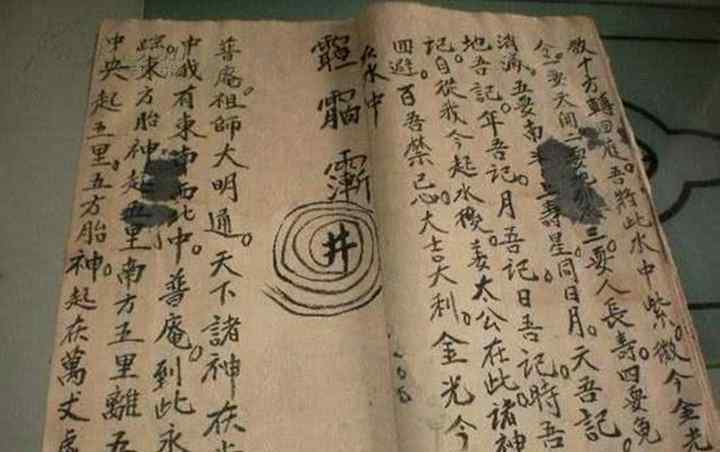 十方轉回 吾將此水中紫。微今金光
一要天開二要地 三要人長壽。四要鬼
消滅。五要南斗 壽星。同日月。天吾記
地吾記。年吾記。月吾記日吾記。時吾
記。自從我今起水後姜太公在此諸神
回避。百吾禁忌大吉大利。金光今
在水中
井
普庵祖師大明通。天下諸神在
中我有東南西北中。普庵。到此永
東方胎神起五里南方五里離五
中央起五里。五方胎神。起在萬丈